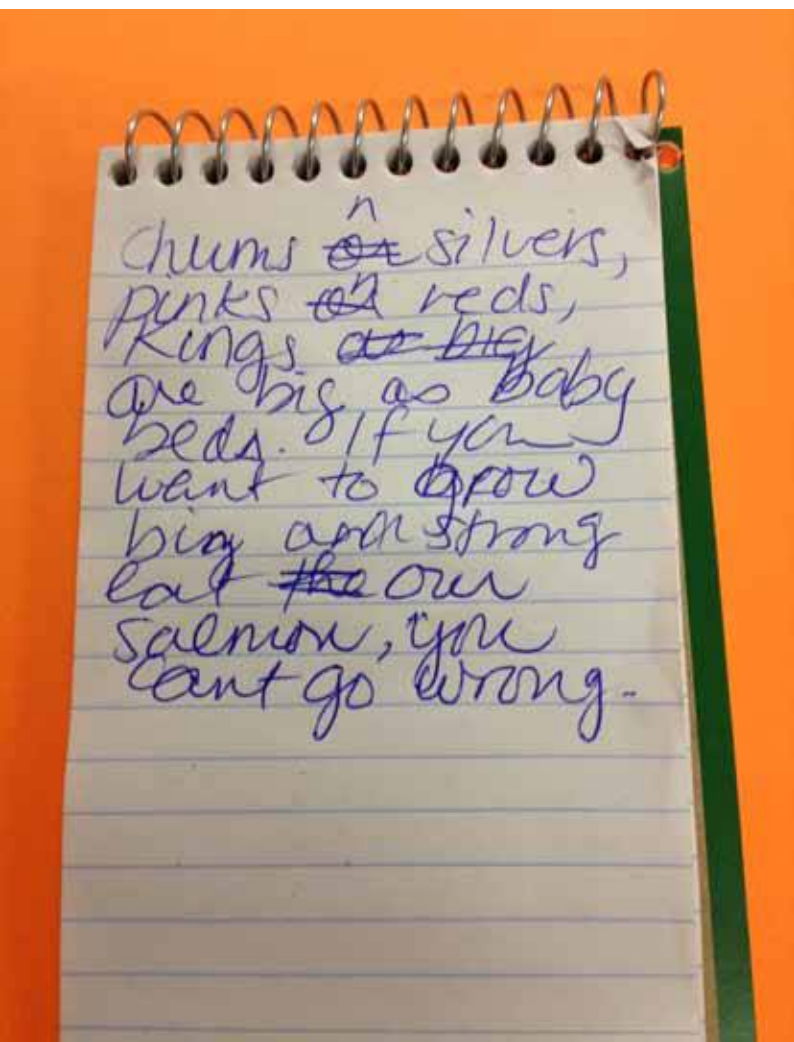 Chums n silvers,
pinks n reds,
Kings
are big as baby
beds. If you
want to grow
big and strong
eat our
salmon, you
cant go wrong.